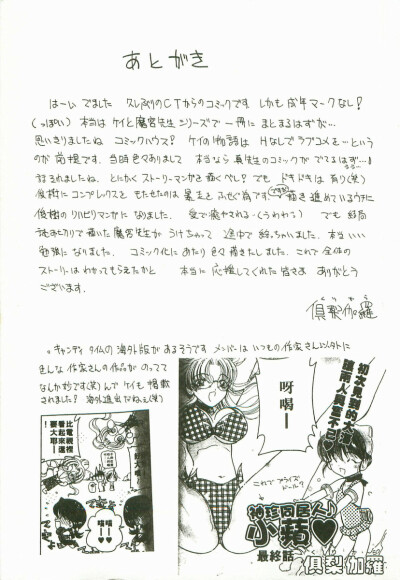 あとがき
はーい でました 久し振りのCTからのコミックです しかも成年マークなし?
(っぽい) 本当はケイと魔宮先生シリーズで一冊にまとまるはずが…
思いきりましたね コミックハウス? ケイの物語は Hなしでラブコメを…という
のが前提です。当時色々ありまして 本来なら真先生のコミックがでてるはず…
とにかくストーリーマンガを描くべし? でも ドキドキは有り(笑)
俊樹にコンプレックスをもたせたのは暴走をふせぐ為です。ですが 描き進めているウチに
俊樹のリハビリマンガになりました。愛で癒やされる(うわわっ) でも 結局
描いた魔宮先生が うけちゃって 途中で終っちゃいました。本当 いい
勉強になりました。コミック化にあたり 色々描きたしました。これで全体の
ストーリーはわかってもらえたかと 本当に応援してくれた皆さま ありがとう
ございます。
倶梨伽羅
。キャンディ タイムの海外版があるそうです メンバーは いつもの作家さん以外に
色んな作家さんの作品がのってて
なんか妙です(笑)んで ケイも掲載
されました? 海外進出だねぇ(笑)
比電視裡
看起來還
要大耶—
呀喝—
初次見面的大漢
讓同人興奮不已
これで
神珍同居人♪
小蘋♥
最終話
倶梨伽羅